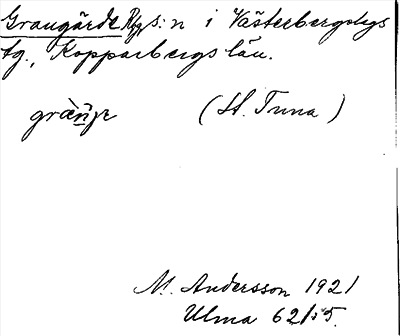 Grangärde Rgs:n i Västerbergslags
tg., Kopparbergs län.
(St. Tuna)
M. Andersson 1921
Ulma 62/:5.